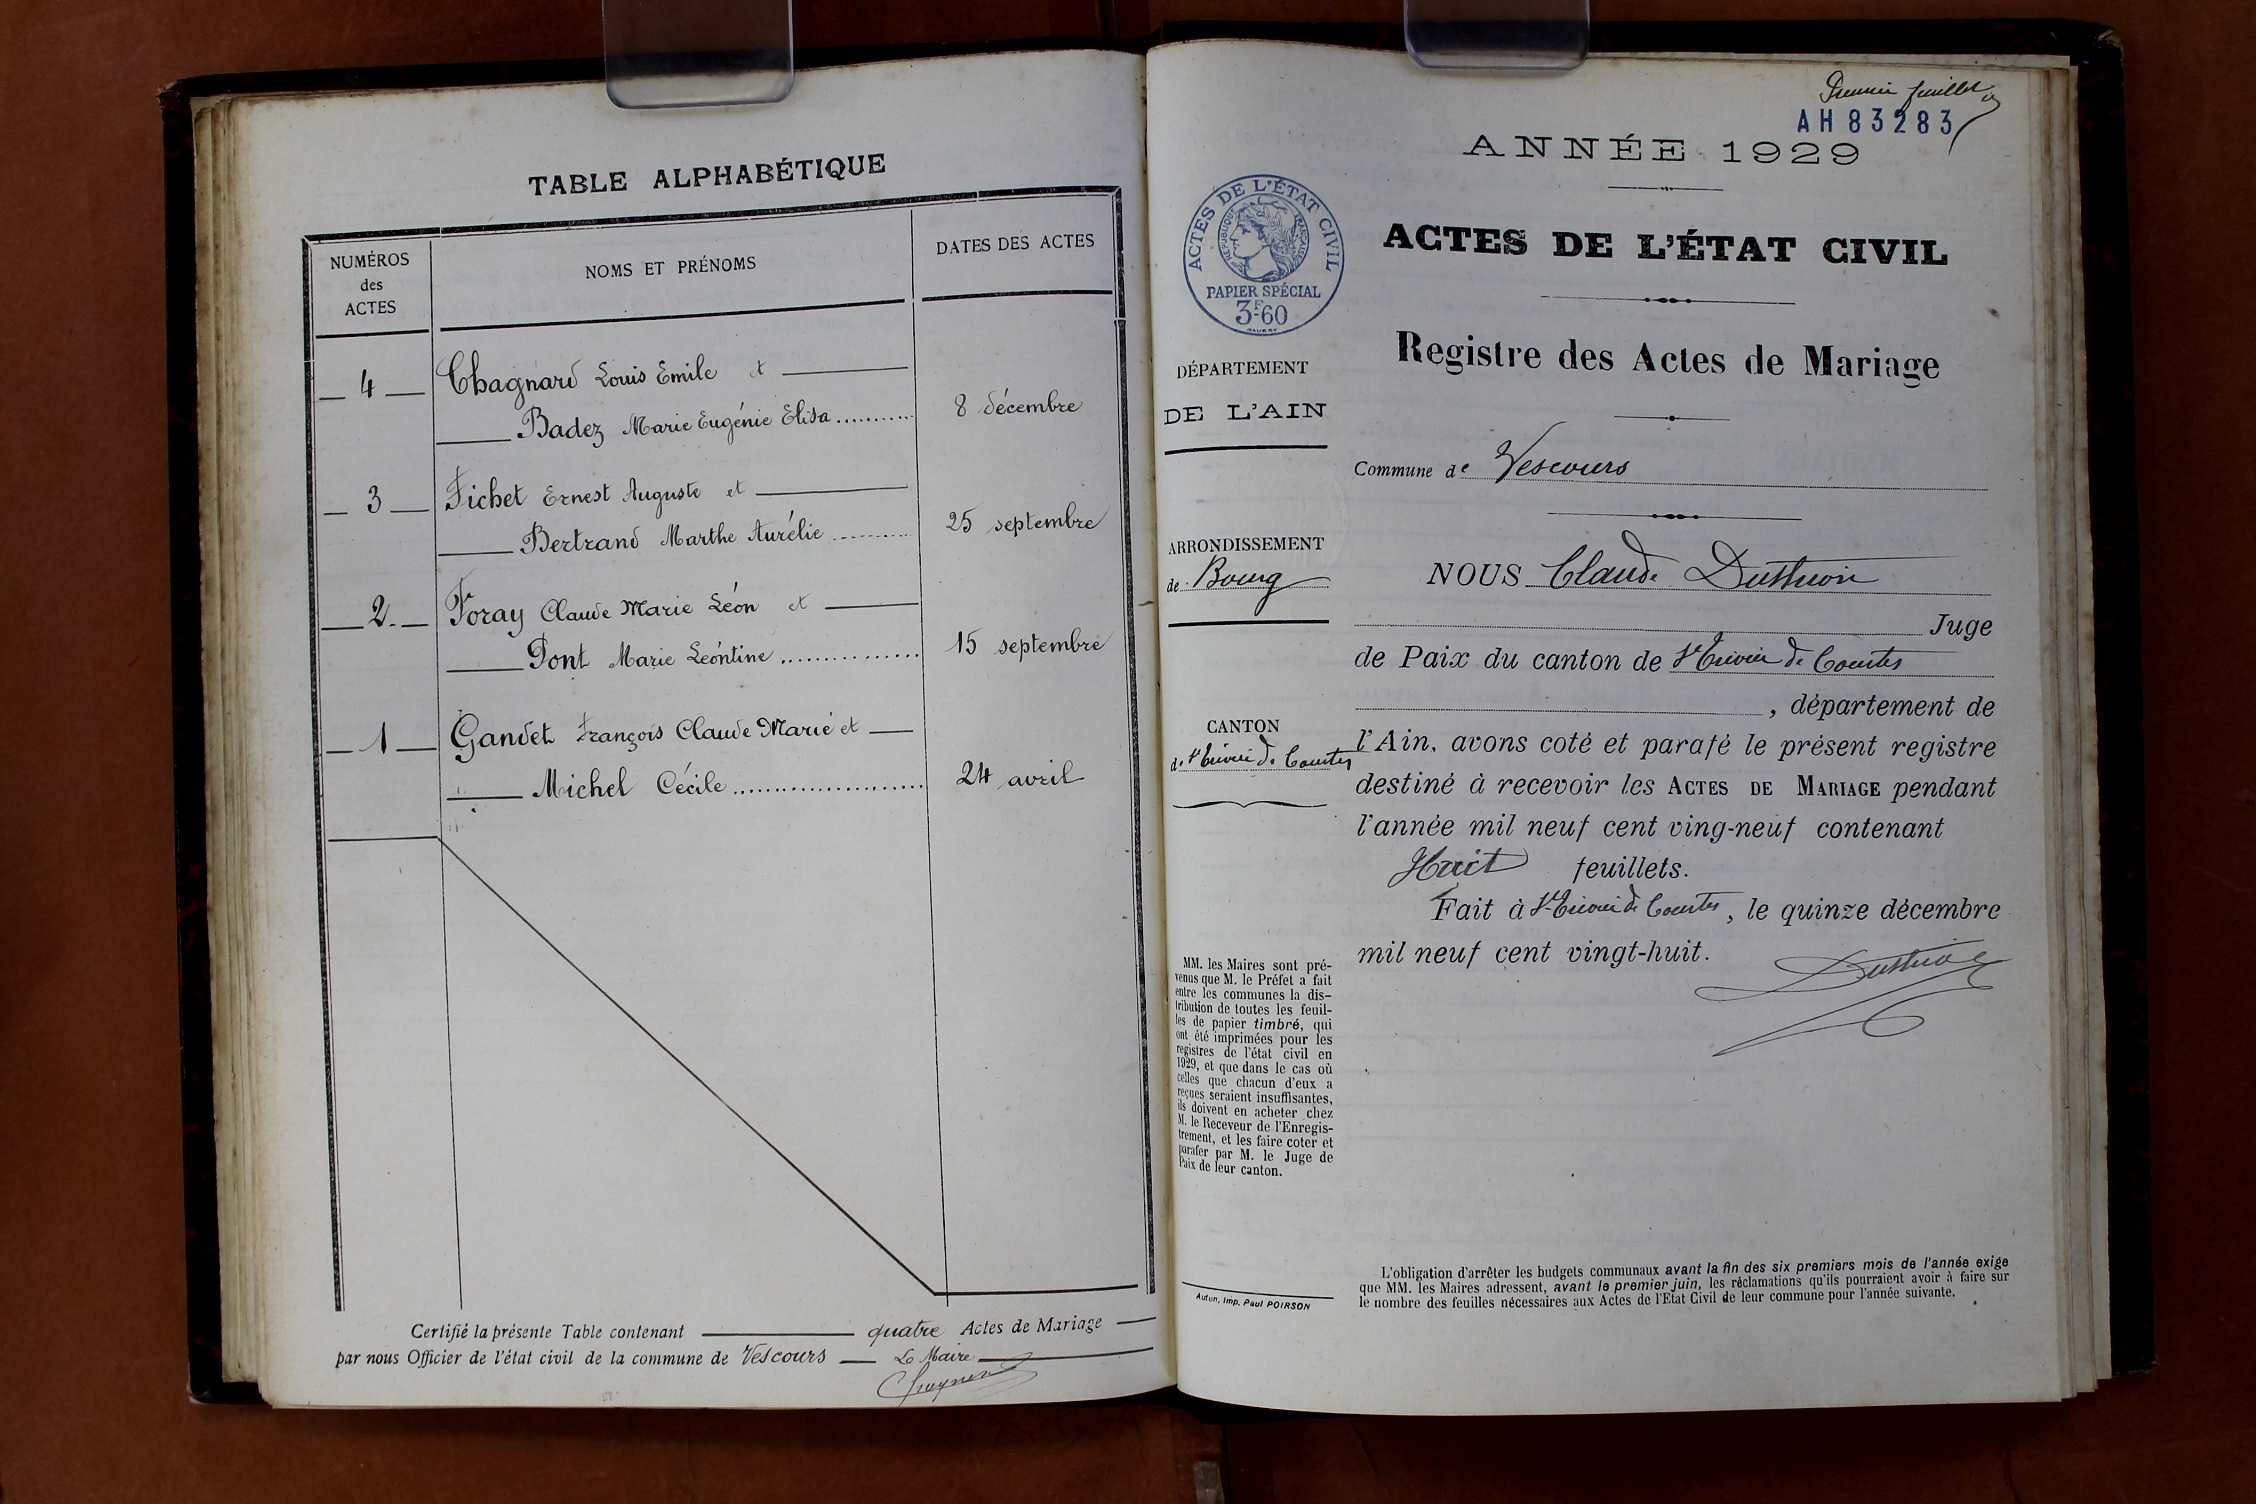 TABLE ALPHABÉTIQUE
NUMÉROS
des
ACTES
NOMS ET PRÉNOMS
DATES DES ACTES
4 Chagnard Louis Emile et
Badez Marie Eugénie Elisa
8 décembre
3 Fichet Ernest Auguste et
Bertrand Marthe Aurélie
25 septembre
2 Foray Claude Marie Léon et
Pont Marie Léontine
15 septembre
1 Gandet François Claude Marie et
Michel Cécile
24 avril
Certifié la présente Table contenant quatre Actes de Mariage
par nous Officier de l'état civil de la commune de Vescours Le Maire
Premier feuillet
AH 83283
ANNÉE 1929
ACTES DE L'ÉTAT CIVIL
RÉPUBLIQUE FRANÇAISE
PAPIER SPÉCIAL
3F60
ACTES DE L'ÉTAT CIVIL
Registre des Actes de Mariage
DÉPARTEMENT
DE L'AIN
Commune de Vescours
ARRONDISSEMENT
de Bourg
CANTON
de St Trivier de Courtes
NOUS Claude
Juge
de Paix du canton de St Trivier de Courtes
, département de
l'Ain, avons coté et parafé le présent registre
destiné à recevoir les ACTES DE MARIAGE pendant
l'année mil neuf cent ving-neuf contenant
Huit feuillets.
Fait à St Trivier de Courtes, le quinze décembre
mil neuf cent vingt-huit.
MM. les Maires sont pré-
venus que M. le Préfet a fait
entre les communes la dis-
tribution de toutes les feuil-
les de papier timbré, qui
ont été imprimées pour les
registres de l'état civil en
1929, et que dans le cas où
celles que chacun d'eux a
reçues seraient insuffisantes,
ils doivent en acheter chez
M. le Receveur de l'Enregis-
trement, et les faire coter et
parafer par M. le Juge de
Paix de leur canton.
Autun, Imp. Paul POIRSON
L'obligation d'arrêter les budgets communaux avant la fin des six premiers mois de l'année exige
que MM. les Maires adressent, avant le premier juin, les réclamations qu'ils pourraient avoir à faire sur
le nombre des feuilles nécessaires aux Actes de l'Etat Civil de leur commune pour l'année suivante.